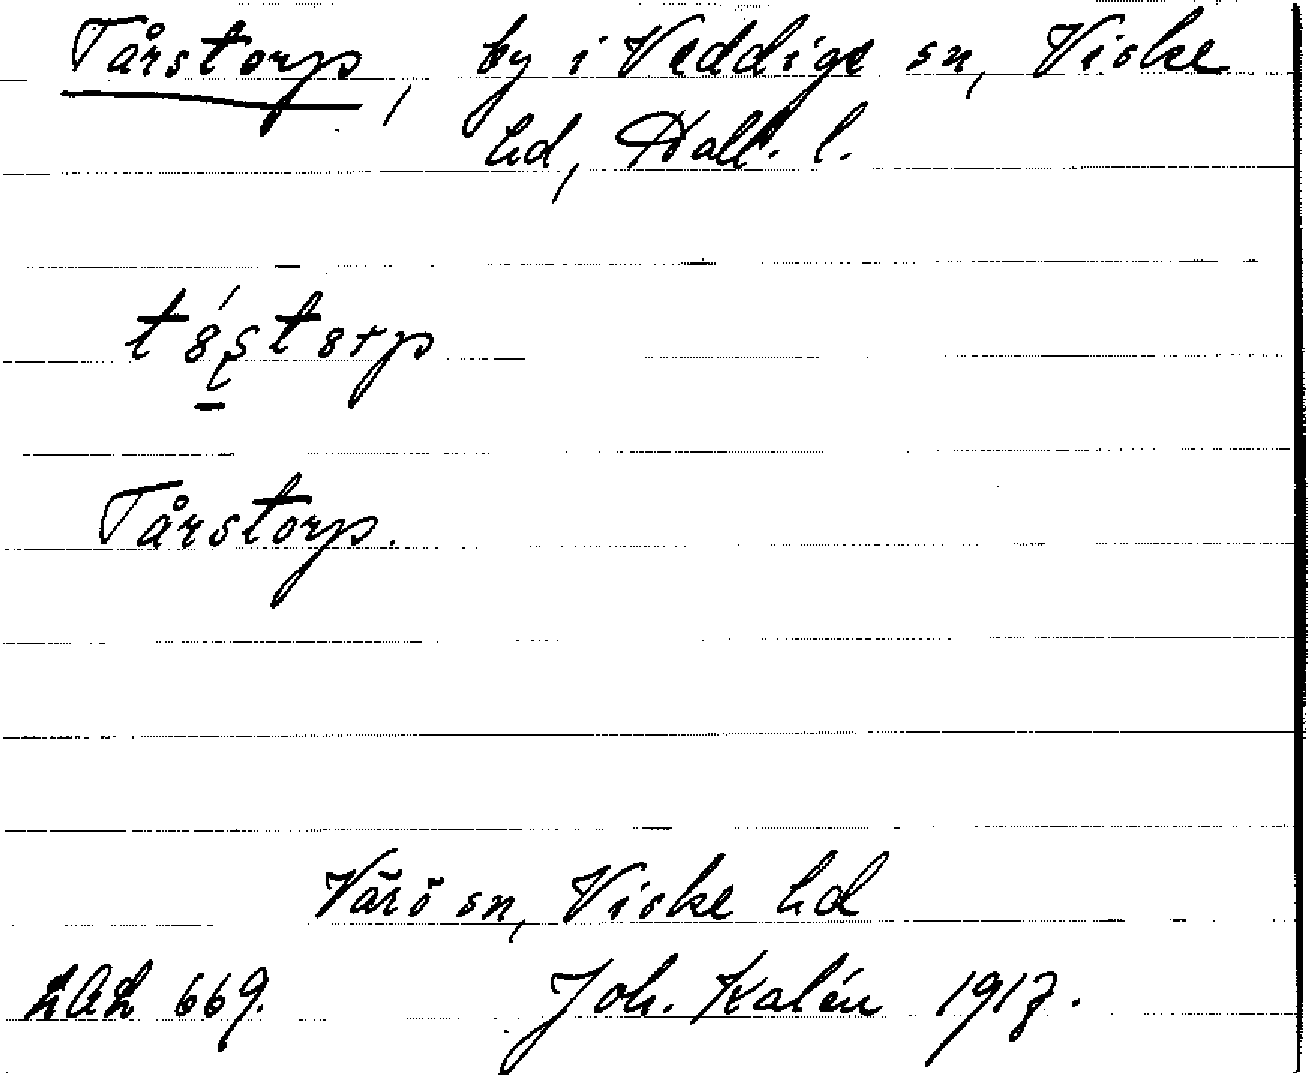 Tårstorp, by i Veddige sn, Viske
hd, Hall. l.
Tårstorp.
Värö sn, Viske hd
LAL 669. Joh. Kalén 1917.